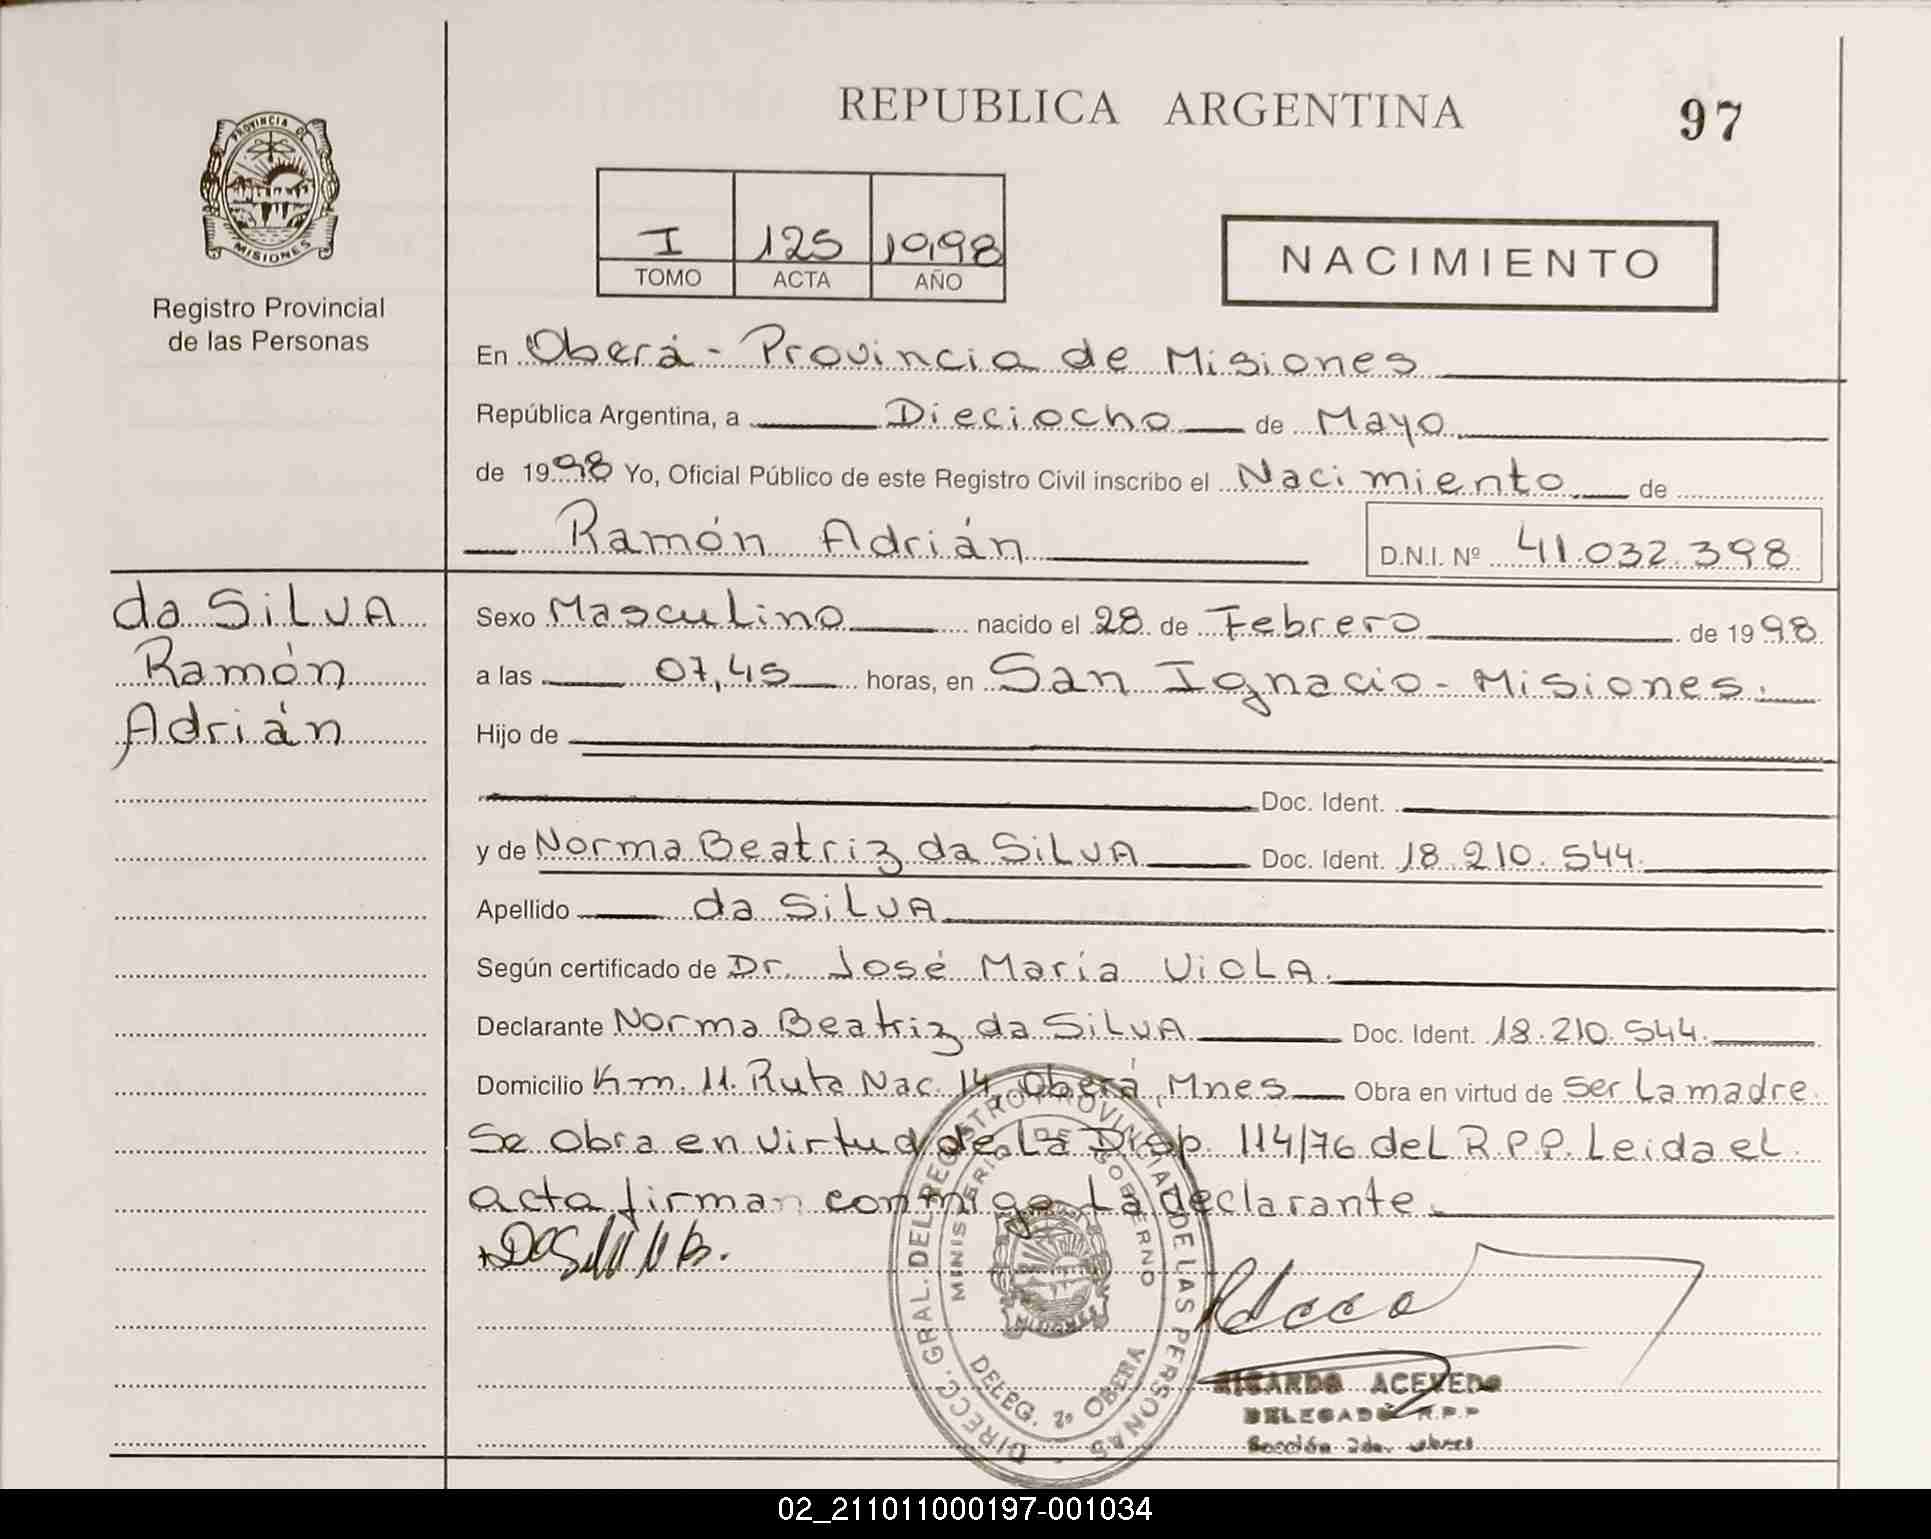 REPUBLICA ARGENTINA
97
PROVINCIA DE
MISIONES
Registro Provincial
de las Personas
I 125 1998
TOMO ACTA AÑO
NACIMIENTO
En Oberá - Provincia de Misiones
República Argentina, a Dieciocho de Mayo
de 1998 Yo, Oficial Público de este Registro Civil inscribo el Nacimiento de
Ramón Adrián D.N.I. Nº 41.032.398
da SiLVA
Ramón
Adrián
Sexo Masculino nacido el 28 de Febrero de 1998
a las 07,45 horas, en San Ignacio - Misiones.
Hijo de
Doc. Ident.
y de Norma Beatriz da SiLVA Doc. Ident. 18.210.544.
Apellido da SiLVA
Según certificado de Dr. José María VioLA.
Declarante Norma Beatriz da SiLVA Doc. Ident. 18.210.544.
Domicilio Km. 11. Ruta Nac. 14, Oberá, Mnes Obra en virtud de ser La madre.
Se obra en virtud de La Disp. 114/76 del R.P.P. Leida el
acta firman conmigo La declarante.
DIRECC. GRAL. DEL REGISTRO PROVINCIAL DE LAS PERSONAS
MINISTERIO DE GOBIERNO
MISIONES
DELEG. 2ª OBERA
RICARDO ACEVEDO
DELEGADO R.P.P
Sección 2da.
02_211011000197-001034